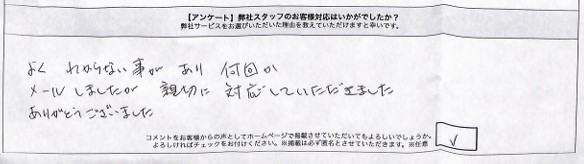 【アンケート】弊社スタッフのお客様対応はいかがでしたか？
弊社サービスをお選びいただいた理由を教えていただけますと幸いです。
よく わからない事が あり 何回か
メールしましたが 親切に 対応していただきました
ありがとうございました
コメントをお客様からの声としてホームページで掲載させていただいてもよろしいでしょうか。
よろしければチェックをお付けください。※掲載は必ず匿名とさせていただきます。※任意